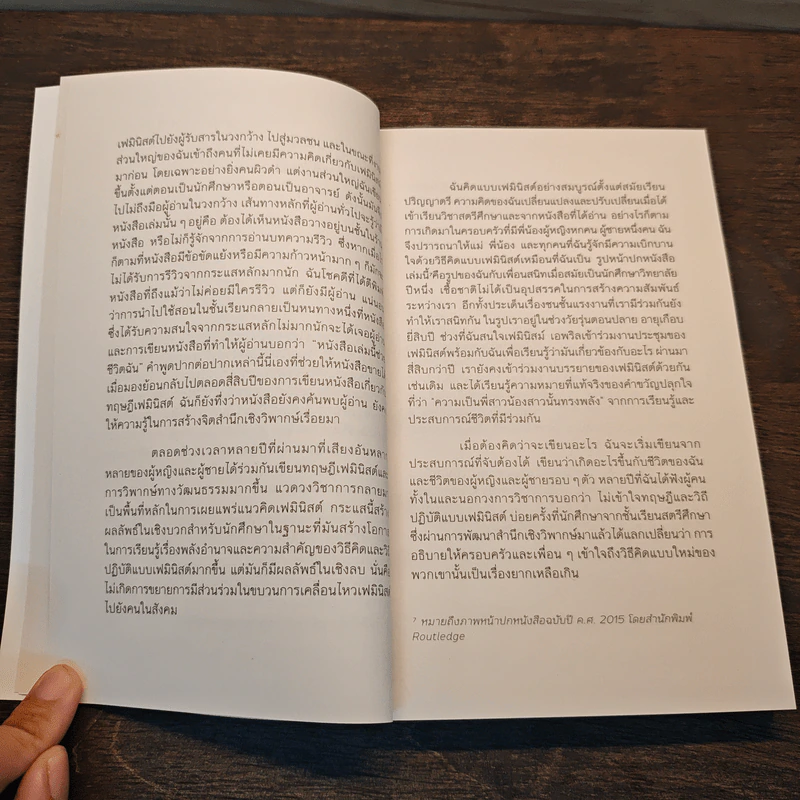 เฟมินิสต์ไปยังผู้รับสารในวงกว้าง ไปสู่มวลชน และในขณะที่งาน
ส่วนใหญ่ของฉันเข้าถึงคนที่ไม่เคยมีความคิดเกี่ยวกับเฟมินิสต์
มาก่อน โดยเฉพาะอย่างยิ่งคนผิวดำ แต่งานส่วนใหญ่ฉันเขียน
ขึ้นตั้งแต่ตอนเป็นนักศึกษาหรือตอนเป็นอาจารย์ ดังนั้นมัน
ไปไม่ถึงมือผู้อ่านในวงกว้าง เส้นทางหลักที่ผู้อ่านทั่วไปจะรู้
หนังสือเล่มนั้น ๆ อยู่คือ ต้องได้เห็นหนังสือวางอยู่บนชั้นในร้าน
หนังสือ หรือไม่ก็รู้จักจากการอ่านบทความรีวิว ซึ่งหากเมื่อ
ก็ตามที่หนังสือมีข้อขัดแย้งหรือมีความก้าวหน้ามาก ๆ ก็มัก
ไม่ได้รับการรีวิวจากกระแสหลักมากนัก ฉันโชคดีที่ได้ตีพิมพ์
หนังสือที่ถึงแม้ว่าไม่ค่อยมีใครรีวิว แต่ก็ยังมีผู้อ่าน แน่นอน
ว่าการนำไปใช้สอนในชั้นเรียนกลายเป็นหนทางหนึ่งที่หนังสือ
ซึ่งได้รับความสนใจจากกระแสหลักไม่มากนักจะได้เจอผู้อ่าน
และการเขียนหนังสือที่ทำให้ผู้อ่านบอกว่า “หนังสือเล่มนี้ช่วย
ชีวิตฉัน” คำพูดปากต่อปากเหล่านี้นี่เองที่ช่วยให้หนังสือขายได้
เมื่อมองย้อนกลับไปตลอดสี่สิบปีของการเขียนหนังสือเกี่ยวกับ
ทฤษฎีเฟมินิสต์ ฉันก็ยังทึ่งว่าหนังสือยังคงค้นพบผู้อ่าน ยังคง
ให้ความรู้ในการสร้างจิตสำนึกเชิงวิพากษ์เรื่อยมา
ตลอดช่วงเวลาหลายปีที่ผ่านมาที่เสียงอันหลาก
หลายของผู้หญิงและผู้ชายได้ร่วมกันเขียนทฤษฎีเฟมินิสต์และ
การวิพากษ์ทางวัฒนธรรมมากขึ้น แวดวงวิชาการกลายมา
เป็นพื้นที่หลักในการเผยแพร่แนวคิดเฟมินิสต์ กระแสนี้สร้าง
ผลลัพธ์ในเชิงบวกสำหรับนักศึกษาในฐานะที่มันสร้างโอกาส
ในการเรียนรู้เรื่องพลังอำนาจและความสำคัญของวิธีคิดและวิธี
ปฏิบัติแบบเฟมินิสต์มากขึ้น แต่มันก็มีผลลัพธ์ในเชิงลบ นั่นคือ
ไม่เกิดการขยายการมีส่วนร่วมในขบวนการเคลื่อนไหวเฟมินิสต์
ไปยังคนในสังคม
ฉันคิดแบบเฟมินิสต์อย่างสมบูรณ์ตั้งแต่สมัยเรียน
ปริญญาตรี ความคิดของฉันเปลี่ยนแปลงและปรับเปลี่ยนเมื่อได้
เข้าเรียนวิชาสตรีศึกษาและจากหนังสือที่ได้อ่าน อย่างไรก็ตาม
การเกิดมาในครอบครัวที่มีพี่น้องผู้หญิงหกคน ผู้ชายหนึ่งคน ฉัน
จึงปรารถนาให้แม่ พี่น้อง และทุกคนที่ฉันรู้จักมีความเบิกบาน
ใจด้วยวิธีคิดแบบเฟมินิสต์เหมือนที่ฉันเป็น รูปหน้าปกหนังสือ
เล่มนี้⁷คือรูปของฉันกับเพื่อนสนิทเมื่อสมัยเป็นนักศึกษาวิทยาลัย
ปีหนึ่ง เชื้อชาติไม่ได้เป็นอุปสรรคในการสร้างความสัมพันธ์
ระหว่างเรา อีกทั้งประเด็นเรื่องชนชั้นแรงงานที่เรามีร่วมกันยัง
ทำให้เราสนิทกัน ในรูปเราอยู่ในช่วงวัยรุ่นตอนปลาย อายุเกือบ
ยี่สิบปี ช่วงที่ฉันสนใจเฟมินิสม์ เอพวิลเข้าร่วมงานประชุมของ
เฟมินิสต์พร้อมกับฉันเพื่อเรียนรู้ว่ามันเกี่ยวข้องกับอะไร ผ่านมา
สี่สิบกว่าปี เรายังคงเข้าร่วมงานบรรยายของเฟมินิสต์ด้วยกัน
เช่นเดิม และได้เรียนรู้ความหมายที่แท้จริงของคำขวัญปลุกใจ
ที่ว่า “ความเป็นพี่สาวน้องสาวนั้นทรงพลัง” จากการเรียนรู้และ
ประสบการณ์ชีวิตที่มีร่วมกัน
เมื่อต้องคิดว่าจะเขียนอะไร ฉันจะเริ่มเขียนจาก
ประสบการณ์ที่จับต้องได้ เขียนว่าเกิดอะไรขึ้นกับชีวิตของฉัน
และชีวิตของผู้หญิงและผู้ชายรอบ ๆ ตัว หลายปีที่ฉันได้ฟังผู้คน
ทั้งในและนอกวงการวิชาการบอกว่า ไม่เข้าใจทฤษฎีและวิถี
ปฏิบัติแบบเฟมินิสต์ บ่อยครั้งที่นักศึกษาจากชั้นเรียนสตรีศึกษา
ซึ่งผ่านการพัฒนาสำนึกเชิงวิพากษ์มาแล้วได้แลกเปลี่ยนว่า การ
อธิบายให้ครอบครัวและเพื่อน ๆ เข้าใจถึงวิธีคิดแบบใหม่ของ
พวกเขานั้นเป็นเรื่องยากเหลือเกิน
⁷ หมายถึงภาพหน้าปกหนังสือฉบับปี ค.ศ. 2015 โดยสำนักพิมพ์
Routledge